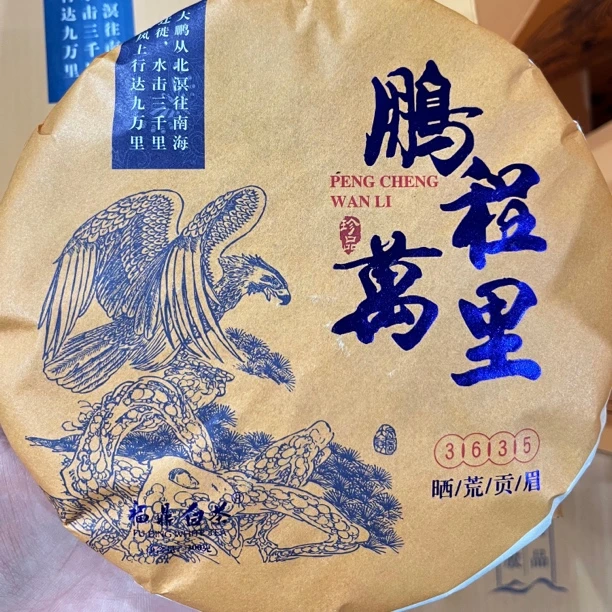 大鹏从北溟往南海
迁徙，水击三千里
风上行达九万里
溟往南
击三千
达九万里
鹏程
萬里
PENG CHENG
WAN LI
珍品
3635
晒/荒/贡/眉
福鼎白茶®
FUDING WHITE TEA
品